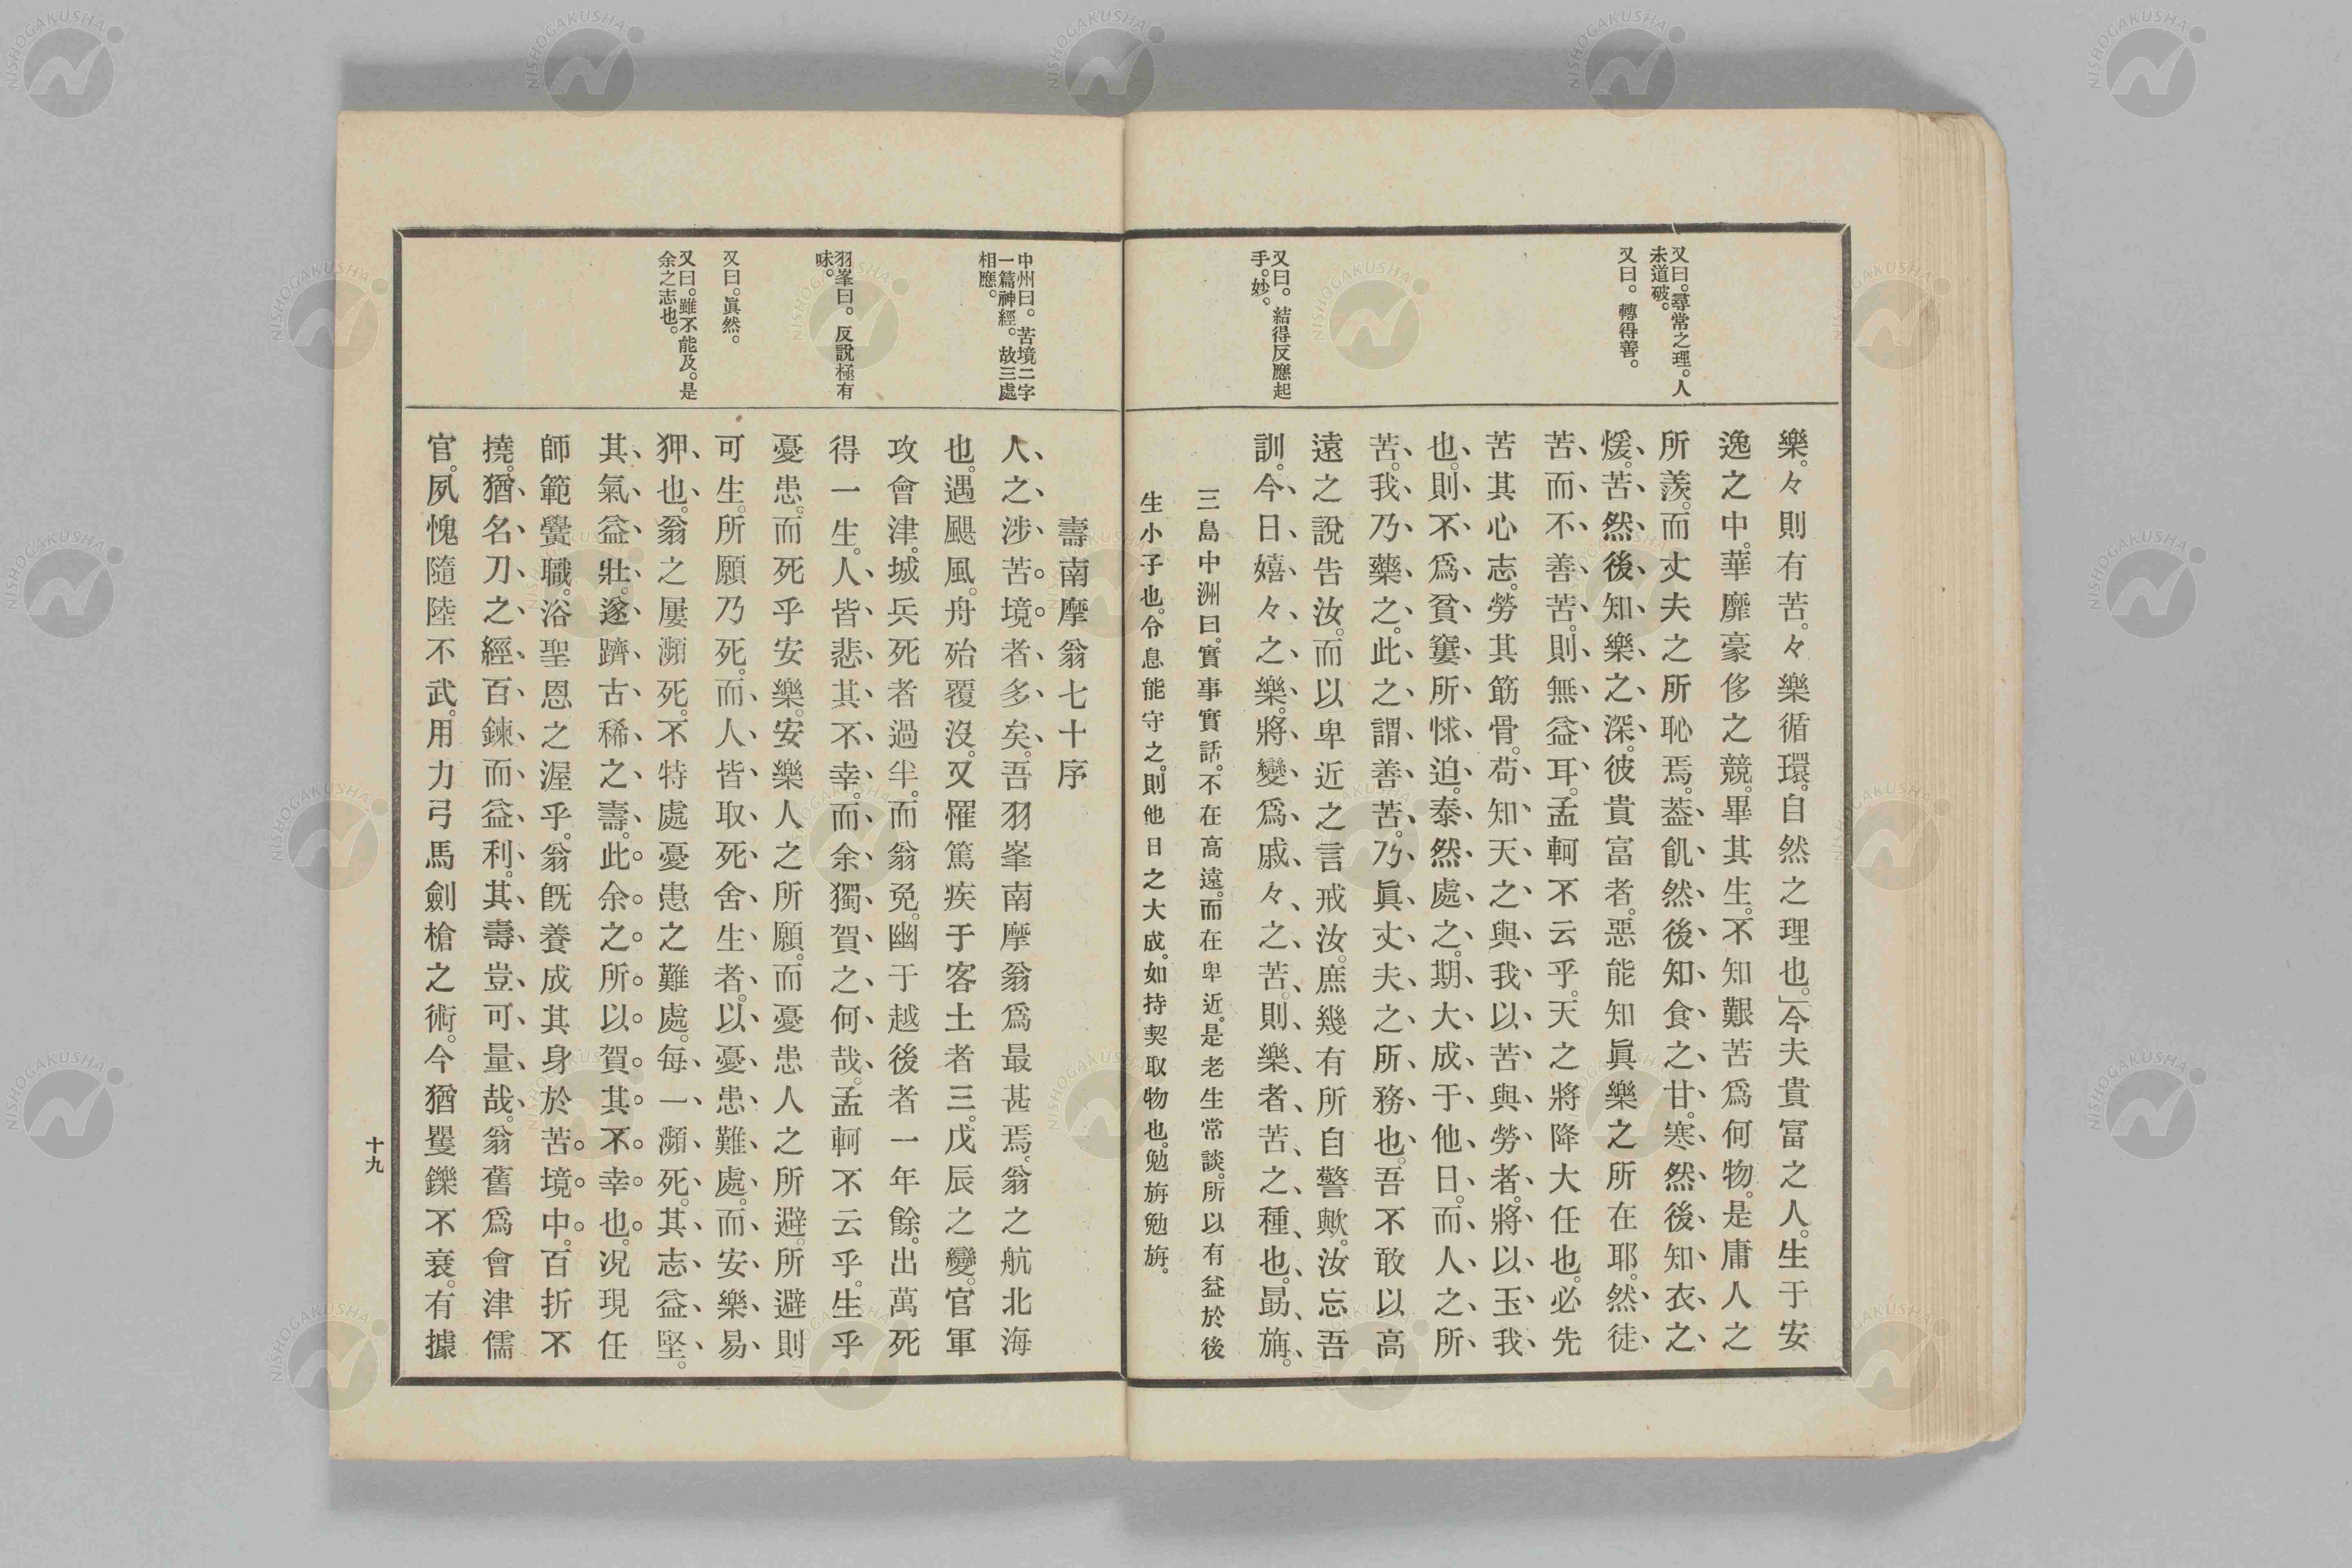 又曰。尋常之理。人
未道破。
又曰。轉得善。
又曰。結得反應起
手。妙。
樂。々則有苦。々樂循環。自然之理也。」今夫貴富之人。生于安
逸之中。華靡豪侈之競。畢其生。不知艱苦爲何物。是庸人之
所羨。而丈夫之所恥焉。葢飢然後知食之甘。寒然後知衣之
煖。苦然後知樂之深。彼貴富者。惡能知眞樂之所在耶。然徒
苦而不善苦。則無益耳。孟軻不云乎。天之將降大任也。必先
苦其心志。勞其筋骨。苟知天之與我以苦與勞者。將以玉我
也。則不爲貧窶所怵迫。泰然處之。期大成于他日。而人之所
苦。我乃藥之。此之謂善苦。乃眞丈夫之所務也。吾不敢以高
遠之說告汝。而以卑近之言戒汝。庶幾有所自警歟。汝忘吾
訓。今日嬉々之樂。將變爲戚々之苦。則樂者苦之種也。勗旃。
三島中洲曰。實事實話。不在高遠。而在卑近。是老生常談。所以有益於後
生小子也。令息能守之。則他日之大成。如持契取物也。勉旃勉旃。
中州曰。苦境二字
一篇神經。故三處
相應。
羽峯曰。反說極有
味。
又曰。眞然。
又曰。雖不能及。是
余之志也。
壽南摩翁七十序
人之涉苦境者多矣。吾羽峯南摩翁爲最甚焉。翁之航北海
也。遇颶風。舟殆覆沒。又罹篤疾于客土者三。戊辰之變。官軍
攻會津。城兵死者過半。而翁免。幽于越後者一年餘。出萬死
得一生。人皆悲其不幸。而余獨賀之何哉。孟軻不云乎。生乎
憂患。而死乎安樂。安樂人之所願。而憂患人之所避。所避則
可生。所願乃死。而人皆取死舍生者。以憂患難處。而安樂易
狎也。翁之屢瀕死。不特處憂患之難處。每一瀕死。其志益堅。
其氣益壯。遂躋古稀之壽。此余之所以賀其不幸也。況現任
師範黌職。浴聖恩之渥乎。翁旣養成其身於苦境中。百折不
撓。猶名刀之經百鍊而益利。其壽豈可量哉。翁舊爲會津儒
官。夙愧隨陸不武。用力弓馬劍槍之術。今猶矍鑠不衰。有據
十九